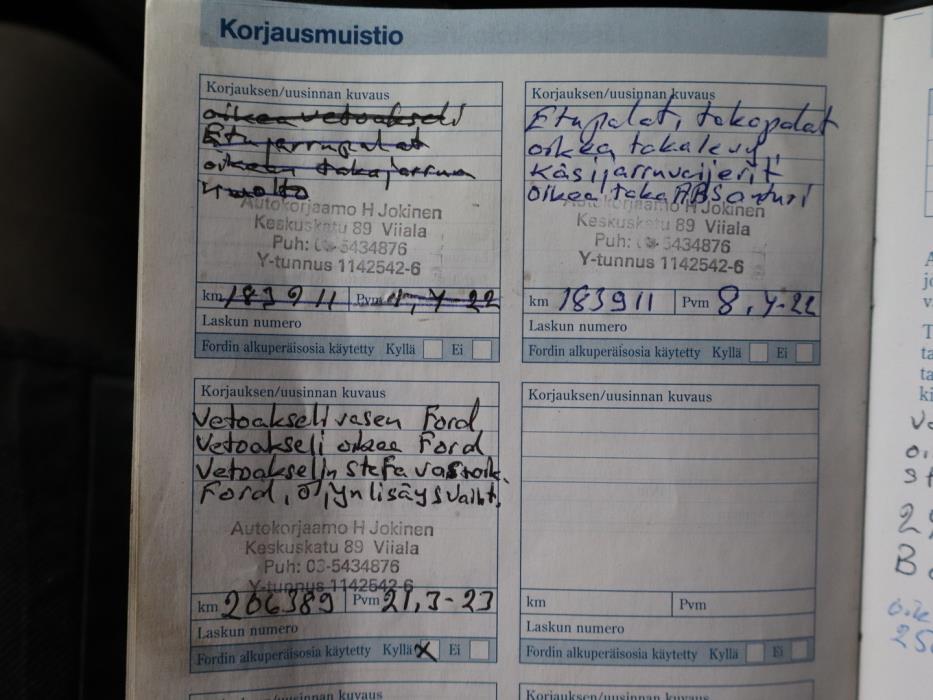 Korjausmuistio
Korjauksen/uusinnan kuvaus
oikea vetoakseli
Etujarrupalat
oikean takajarrun
huolto
Autokorjaamo H Jokinen
Keskuskatu 89 Viiala
Puh: 03-5434876
Y-tunnus 1142542-6
km 183911 Pvm
Laskun numero
Fordin alkuperäisosia käytetty Kyllä Ei
Korjauksen/uusinnan kuvaus
Etupalat, takapalat
oikea takalevy,
Käsijarruvaijerit
oikea taka ABS anturi
Autokorjaamo H Jokinen
Keskuskatu 89 Viiala
Puh: 03-5434876
Y-tunnus 1142542-6
km 183911 Pvm 8.4-22
Laskun numero
Fordin alkuperäisosia käytetty Kyllä Ei
Korjauksen/uusinnan kuvaus
Vetoakseli vasen Ford
Vetoakseli oikea Ford
Vetoakselin stefa vas+oik.
Ford, öljyn lisäys vaiht.
Autokorjaamo H Jokinen
Keskuskatu 89 Viiala
Puh: 03-5434876
Y-tunnus 1142542-6
km 206389 Pvm 21.3-23
Laskun numero
Fordin alkuperäisosia käytetty Kyllä X Ei
Korjauksen/uusinnan kuvaus
km Pvm
Laskun numero
Fordin alkuperäisosia käytetty Kyllä Ei
Korjauksen/uusinnan kuvaus
Korjauksen/uusinnan kuvaus